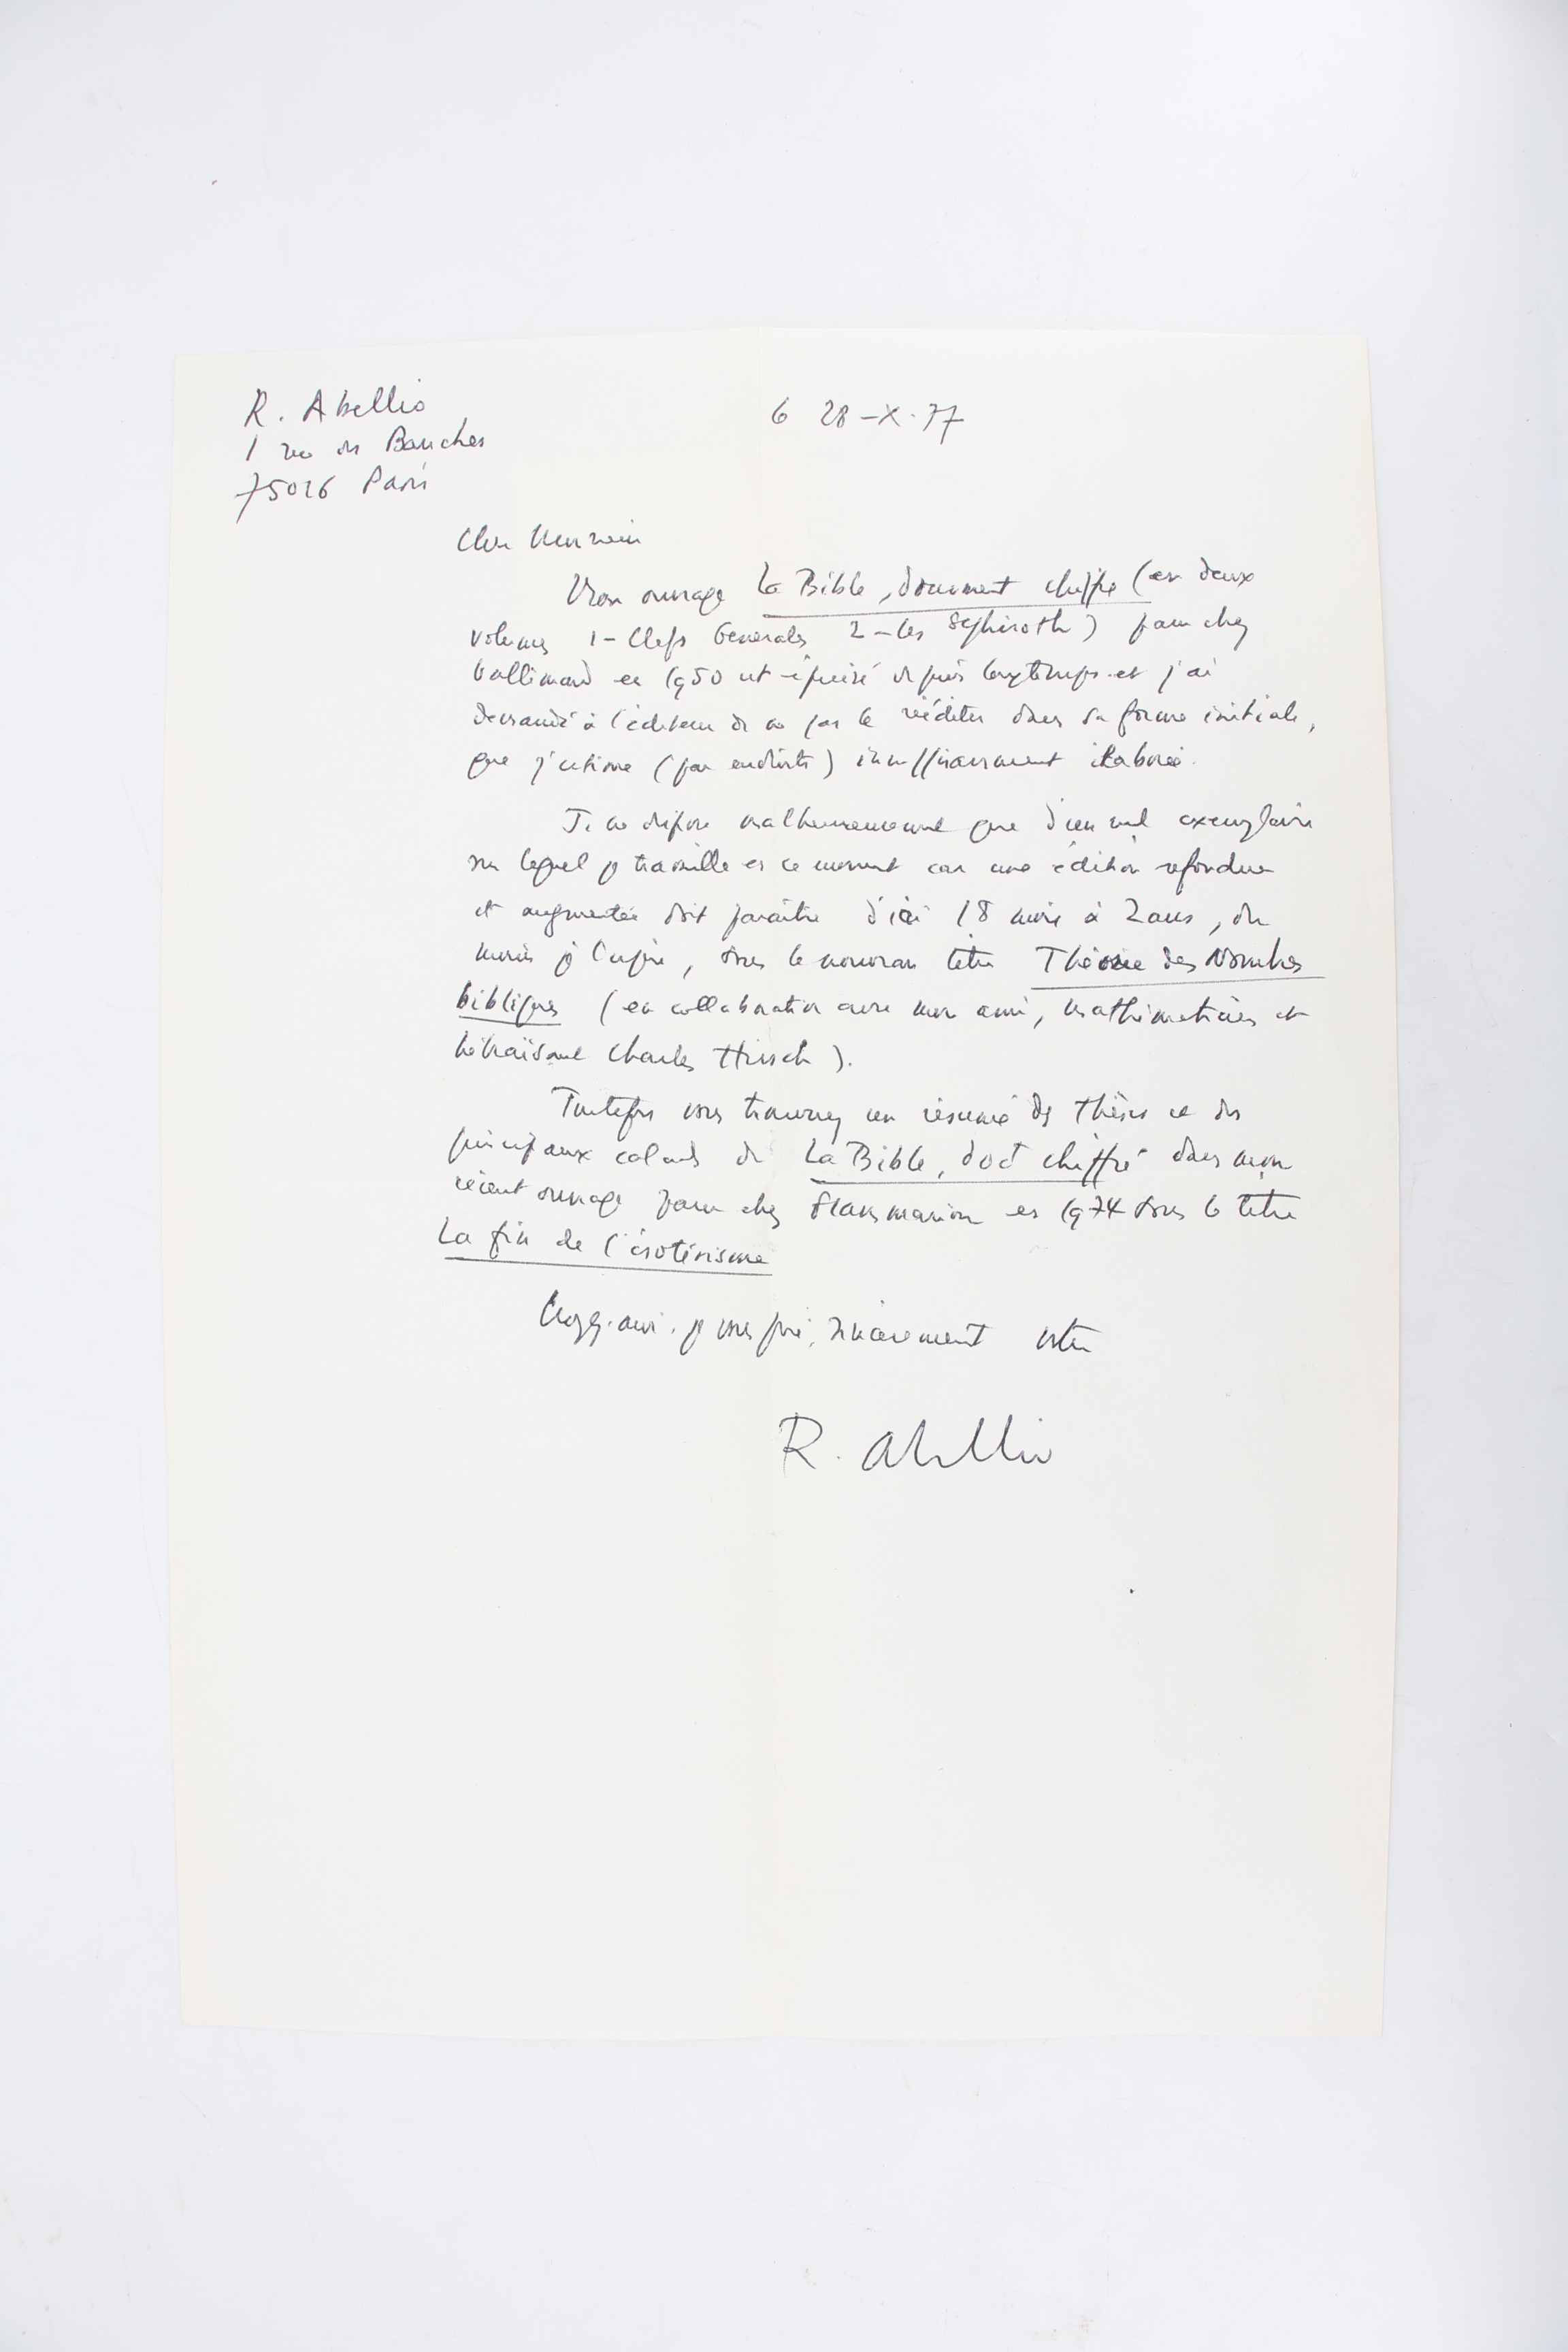 R. Abellio
1 rue des Bauches
75016 Paris
le 28-X-77
Cher Monsieur
Mon ouvrage La Bible, document chiffré (en deux
volumes 1-Clefs Générales 2-les Séphiroth) paru chez
Gallimard en 1950 est épuisé depuis longtemps et j'ai
demandé à l'éditeur de ne pas le rééditer dans sa forme initiale,
que j'estime (par endroits) insuffisamment élaborée.
Je ne dispose malheureusement que d'un seul exemplaire
sur lequel je travaille en ce moment car une édition refondue
et augmentée doit paraître d'ici 18 mois à 2 ans, du
moins je l'espère, sous le nouveau titre Théorie des Nombres
bibliques (en collaboration avec mon ami, mathématicien et
hébraïsant Charles Hirsch).
Toutefois vous trouverez un résumé des thèses et des
principaux calculs de La Bible, doct chiffré dans mon
récent ouvrage paru chez Flammarion en 1974 sous le titre
La fin de l'ésotérisme
Croyez-moi, je vous prie, sincèrement vôtre
R. Abellio